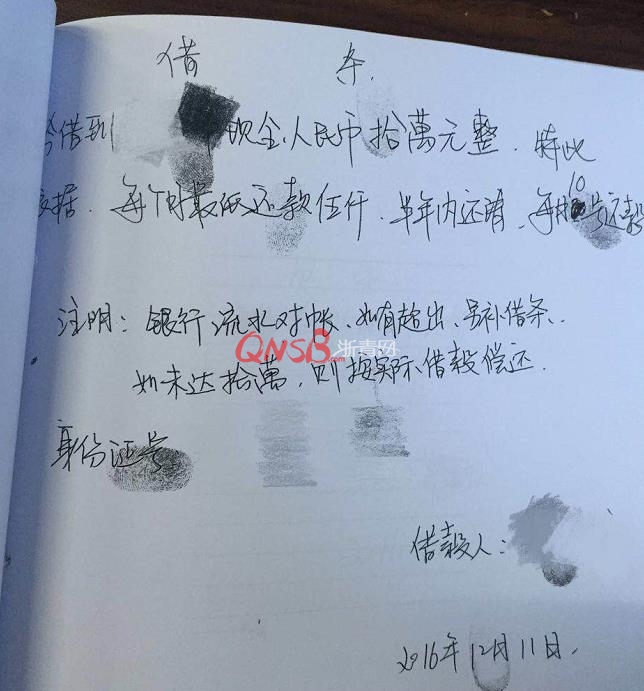 借 条.
今借到 现金人民币拾萬元整. 特此
立据. 每个月最低还款伍仟. 半年内还清, 每月10号还款
注明: 银行流水对帐、如有超出、另补借条、
QNSB.com 浙青网
如未达拾萬, 则按实际借款偿还.
身份证号
借款人:
2016年12月11日.